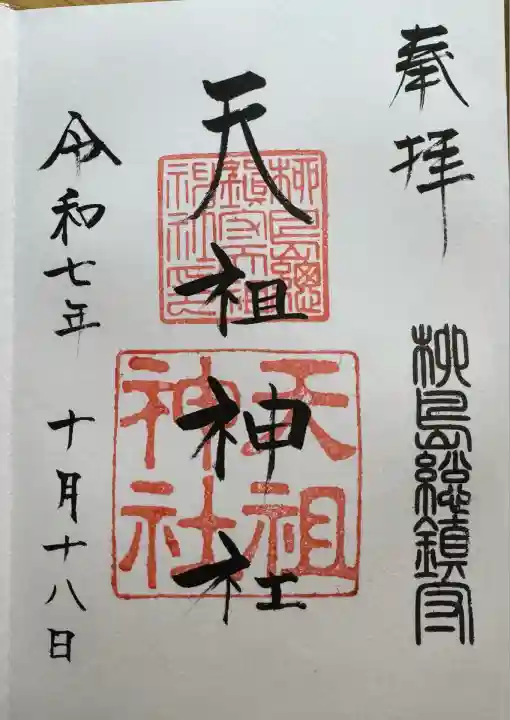 奉拝
柳島総鎮守
天祖神社
柳島總
鎮守天祖
神社之印
天祖
神社
令和七年 十月十八日